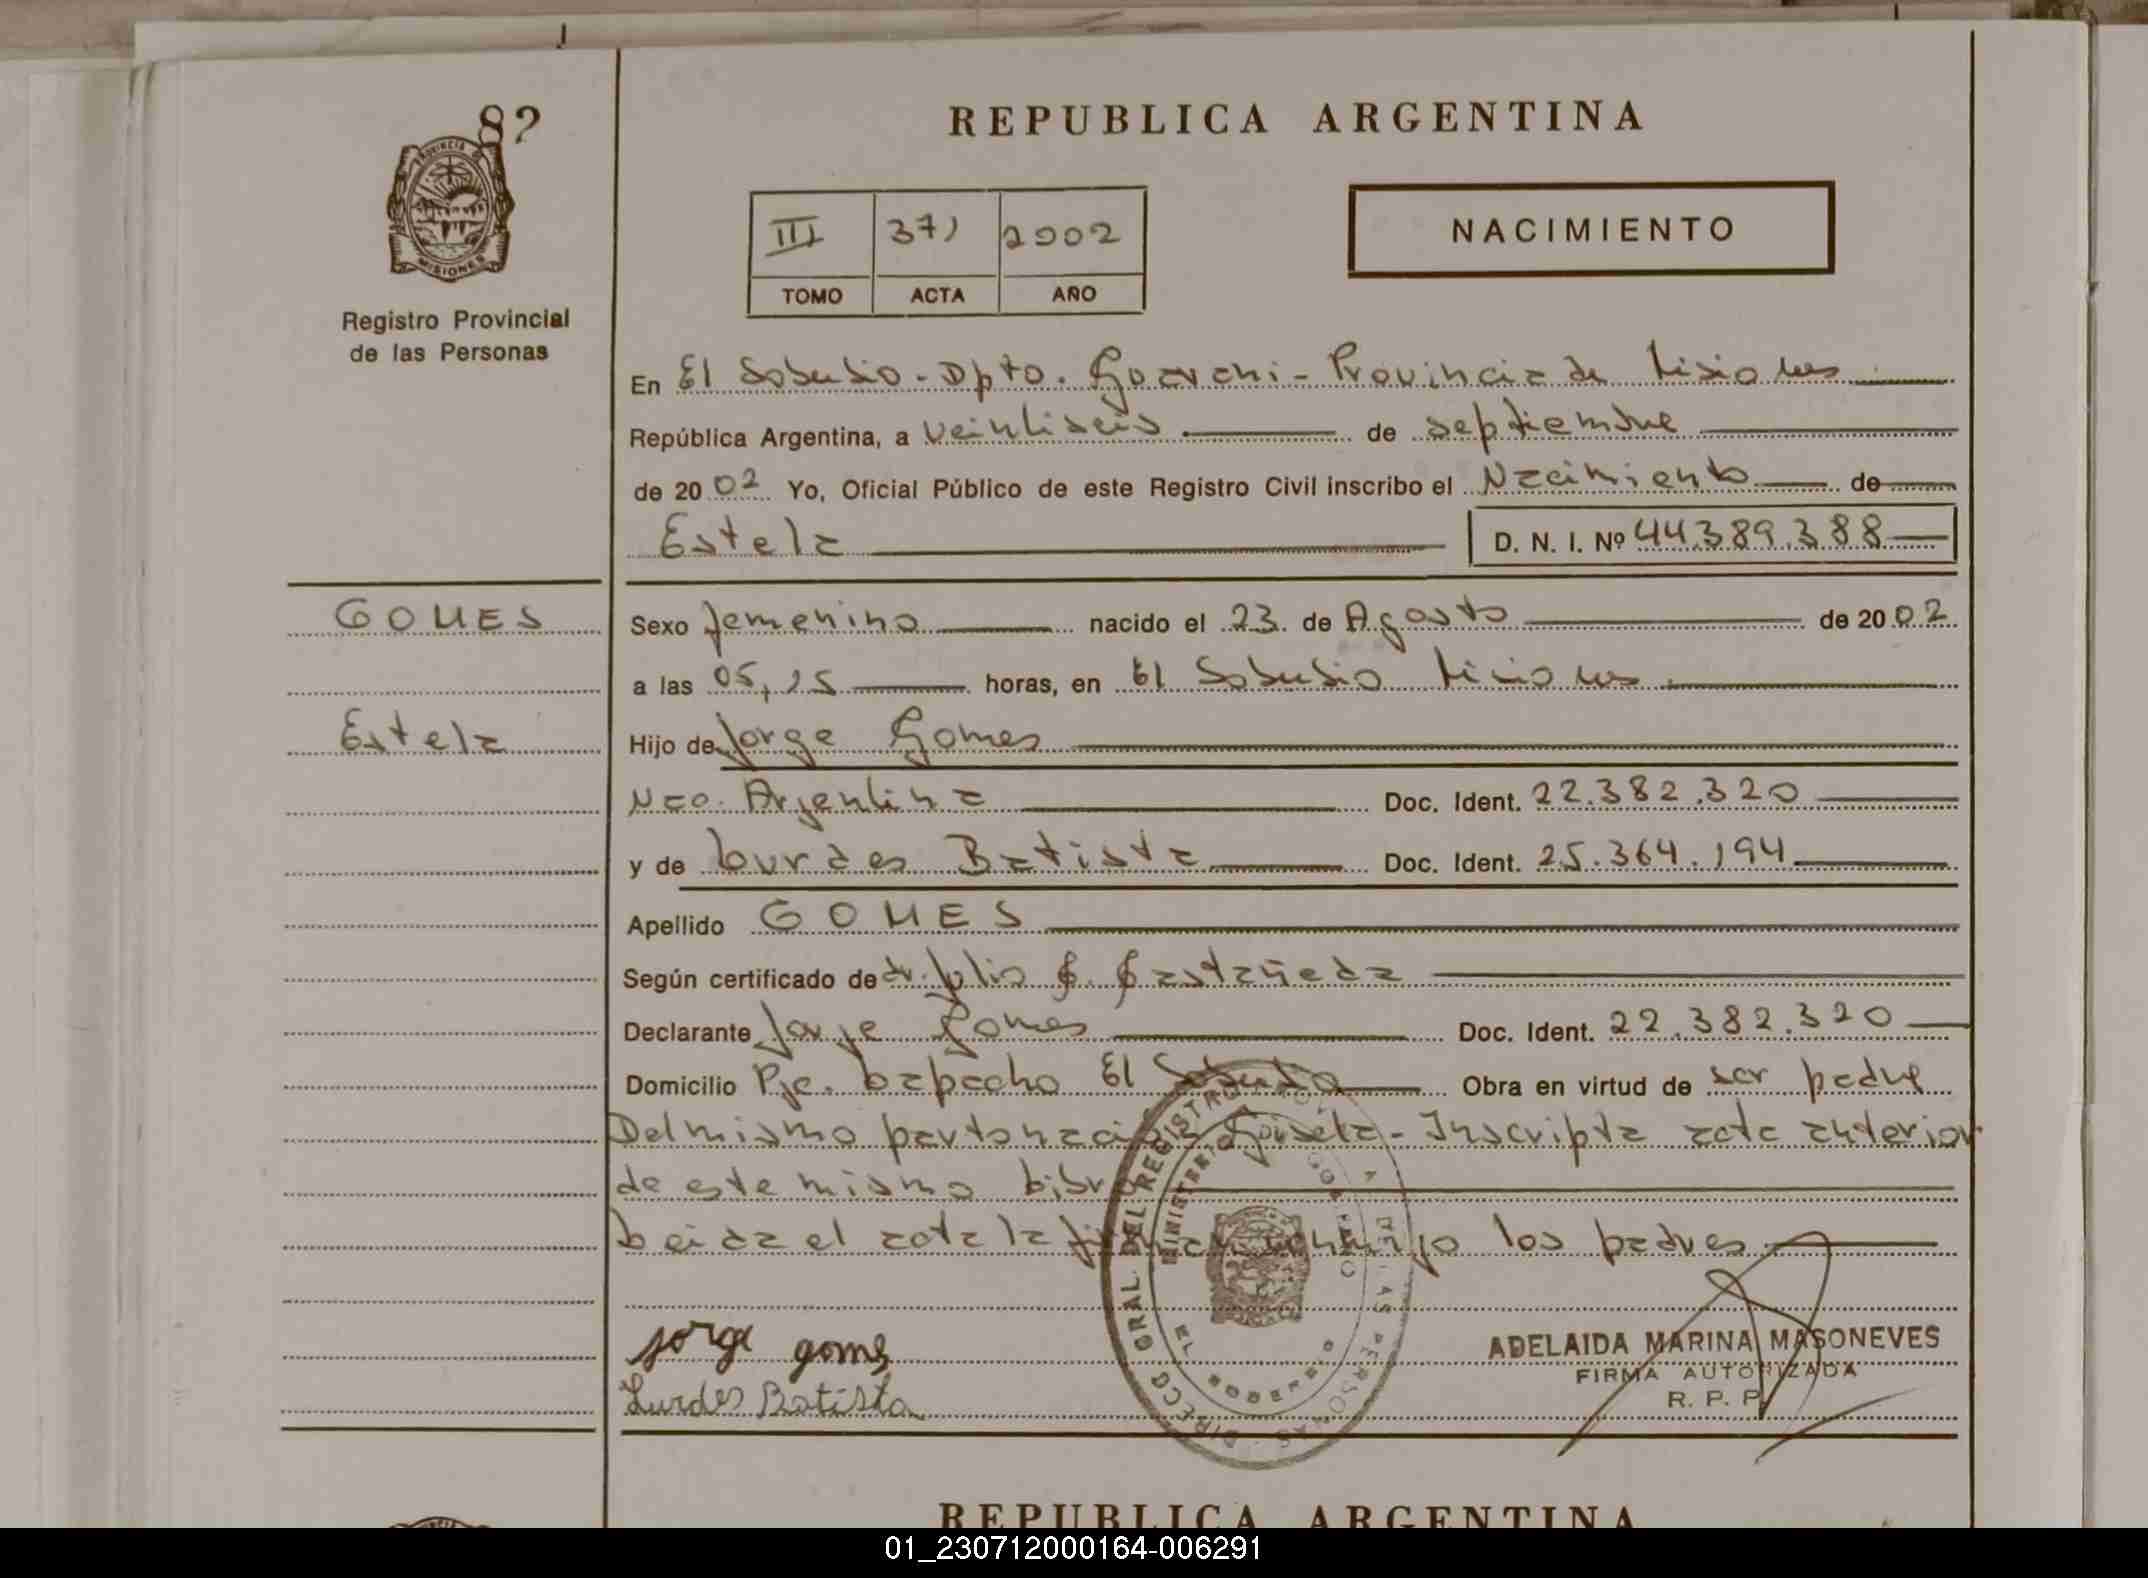 8?
PROVINCIA DE
MISIONES
Registro Provincial
de las Personas
REPUBLICA ARGENTINA
III 371 2002
TOMO ACTA AÑO
NACIMIENTO
En El Soberbio - Dpto. Guarani - Provincia de Misiones
República Argentina, a veintiseis de septiembre
de 2002 Yo, Oficial Público de este Registro Civil inscribo el Nacimiento de
Estela D. N. I. Nº 44.389.388
GOMES
Sexo femenino nacido el 23 de Agosto de 2002
a las 05,15 horas, en El Soberbio Misiones
Estela
Hijo de Jorge Gomes
Nac. Argentina Doc. Ident. 22.382.320
y de Lurdes Batista Doc. Ident. 25.364.194
Apellido GOMES
Según certificado de dr. Julio C. Castañeda
Declarante Jorge Gomes Doc. Ident. 22.382.320
Domicilio Pje. Lapacho El Soberbio Obra en virtud de ser padre
Del mismo parto nació Gisela - Inscripta acta anterior
de este mismo Libro
Leida el acta la firman conmigo los padres
jorge gomes
Lurdes Batista
DIRECC. GRAL. DEL REGISTRO DE LAS PERSONAS
MINISTERIO DE GOBIERNO
EL SOBERBIO
ADELAIDA MARINA MASONEVES
FIRMA AUTORIZADA
R. P. P.
REPUBLICA ARGENTINA
01_230712000164-006291